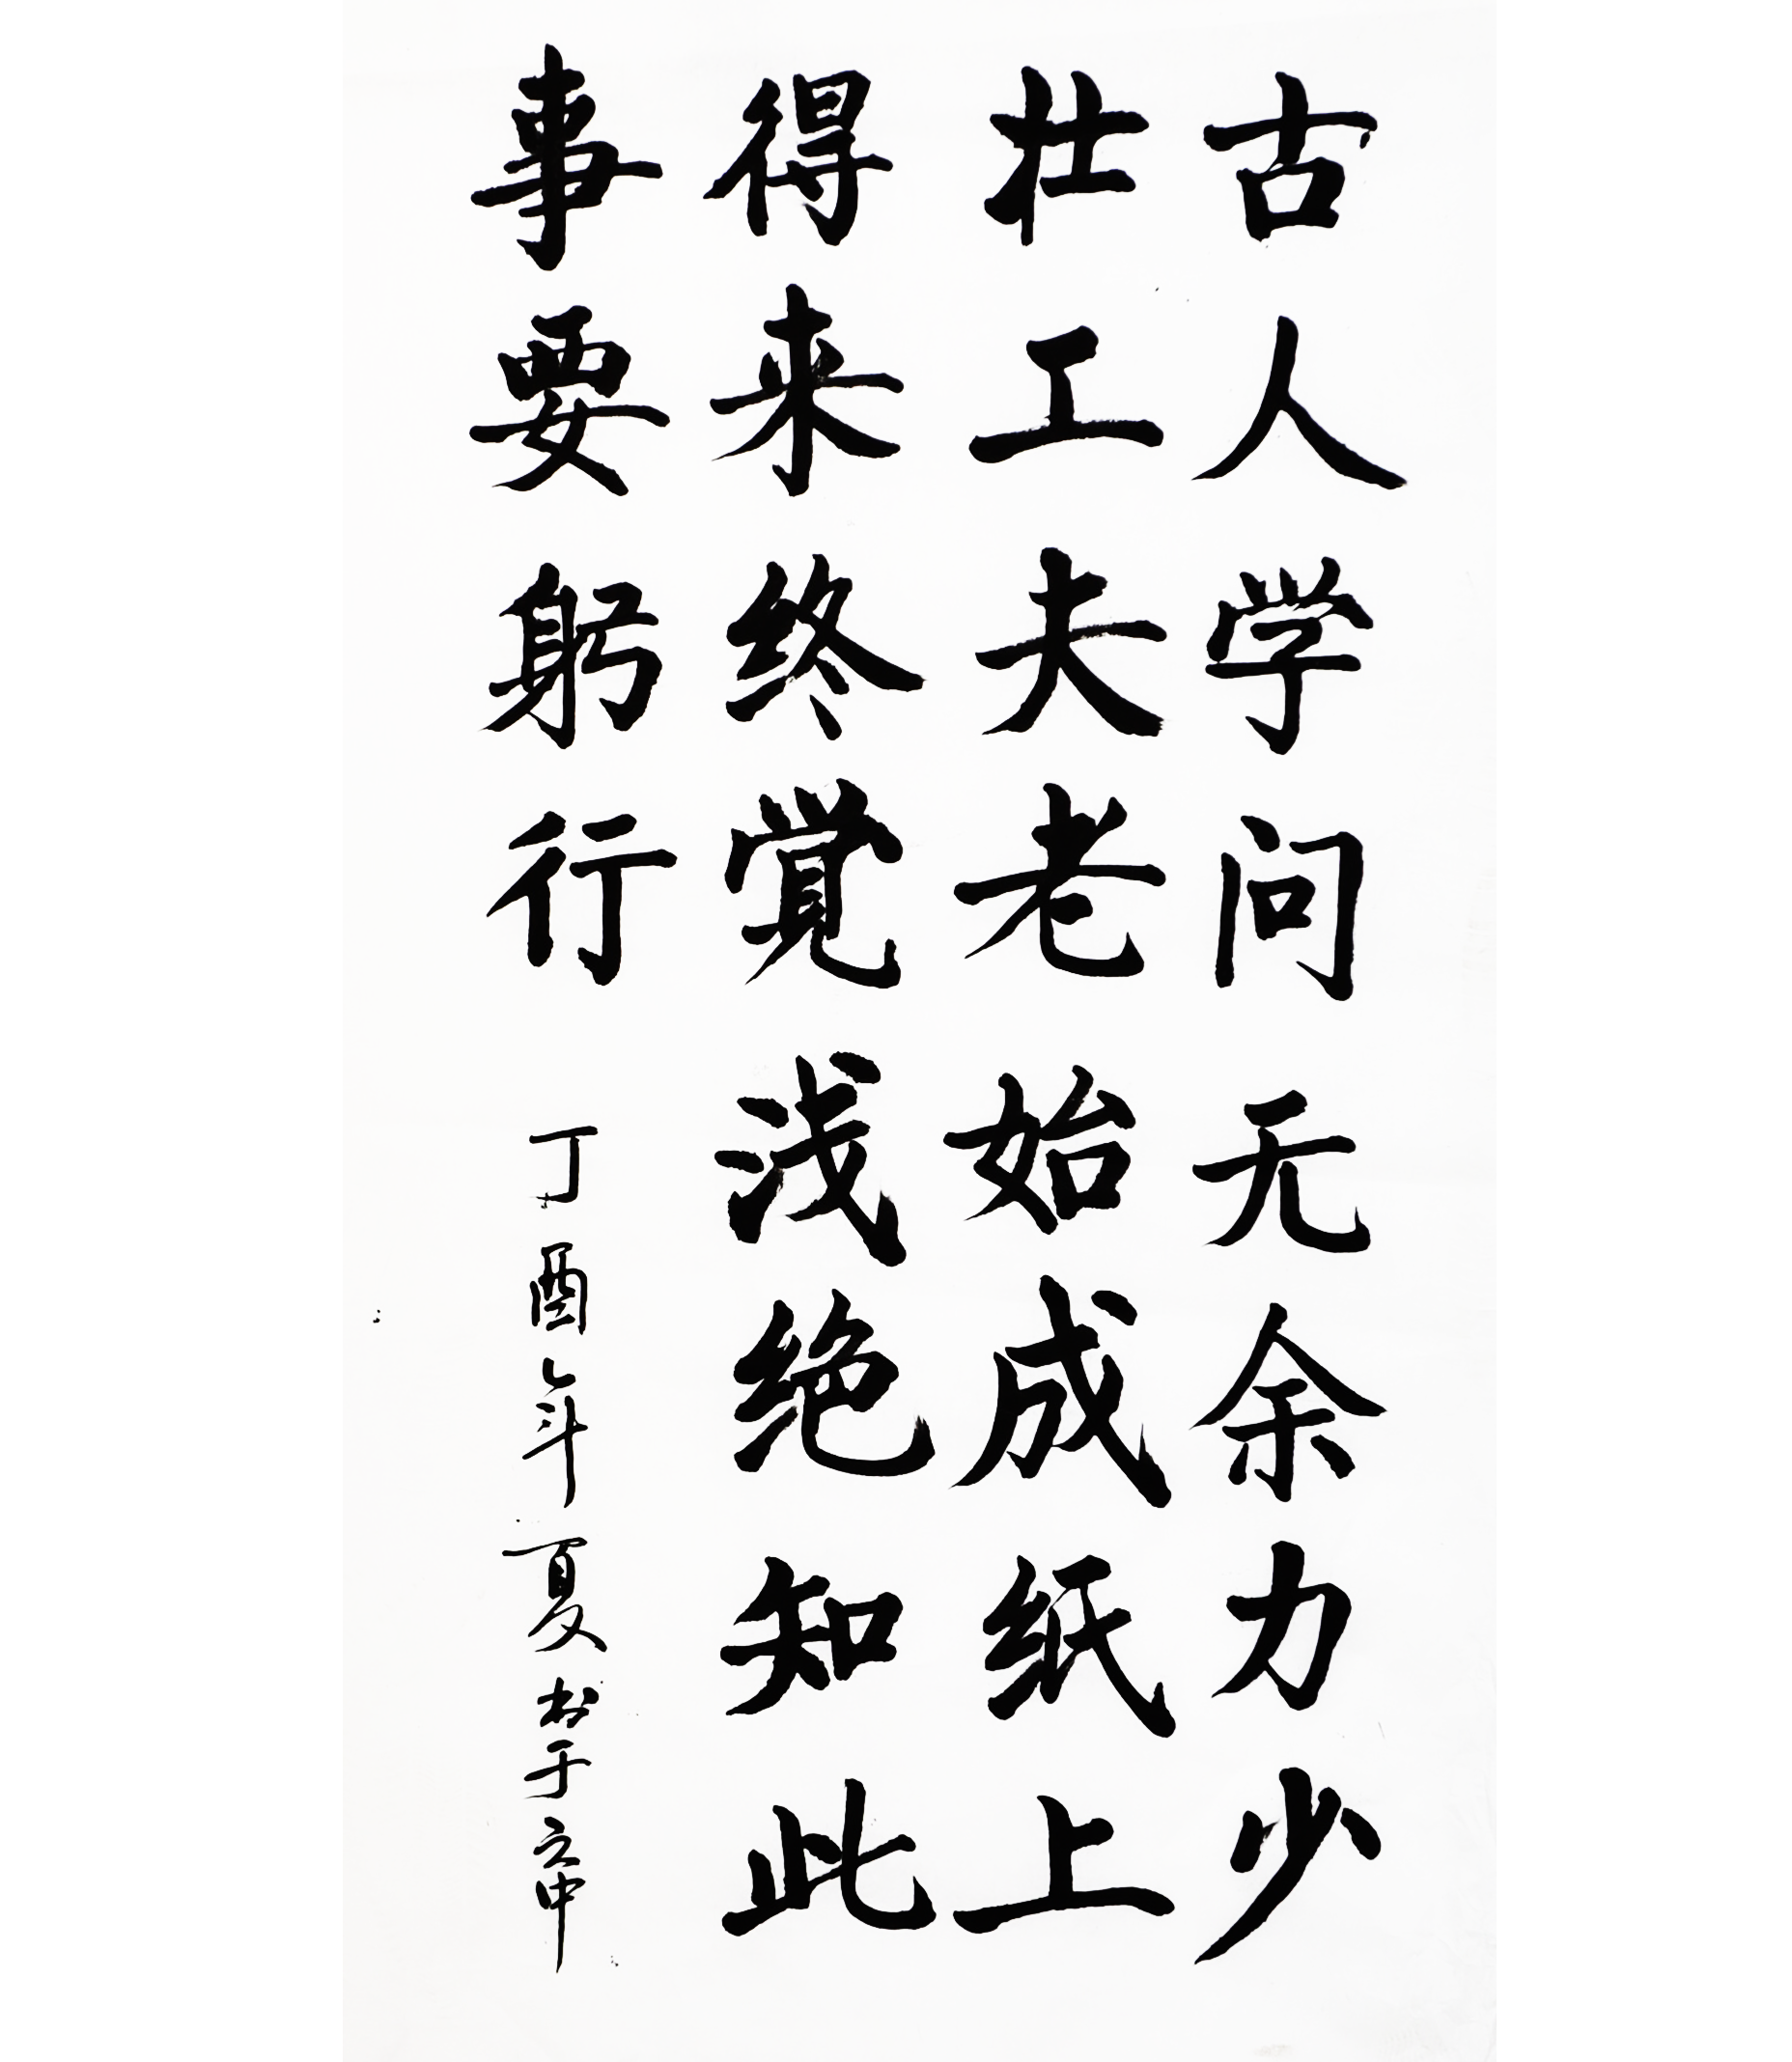 古人学问无余力少
壮工夫老始成纸上
得来终覚浅绝知此
事要躬行 丁酉年夏